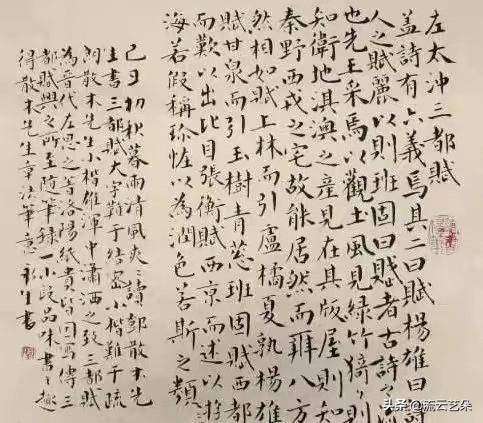 左太冲三都賦
盖詩有六義焉其二曰賦楊雄曰詩
人之賦麗以則班固曰賦者古詩之流
也先王采焉以觀土風見綠竹猗〻則
知衛地淇澳之產見在其版屋則知
秦野西戎之宅故能居然而辨八方
然相如賦上林而引盧橘夏熟楊雄
賦甘泉而引玉樹青葱班固賦西都
而歎以出比目張衡賦西京而述以游
海若假稱珍怪以為潤色若斯之類
己丑初秋暮雨清風爽〻讀鄧散木先
生書三都賦大字難于結密小楷難于疏
朗散木先生小楷雄渾中瀟洒之致三都賦
為晉代左思之著洛陽紙貴皆因寫傳三
都賦興之所至隨筆錄一小段品味書之趣
得散木先生章法筆意 書
头条 @流云艺朵